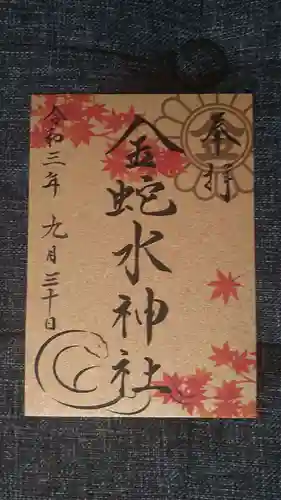 奉拝
金蛇水神社
令和三年 九月三十日